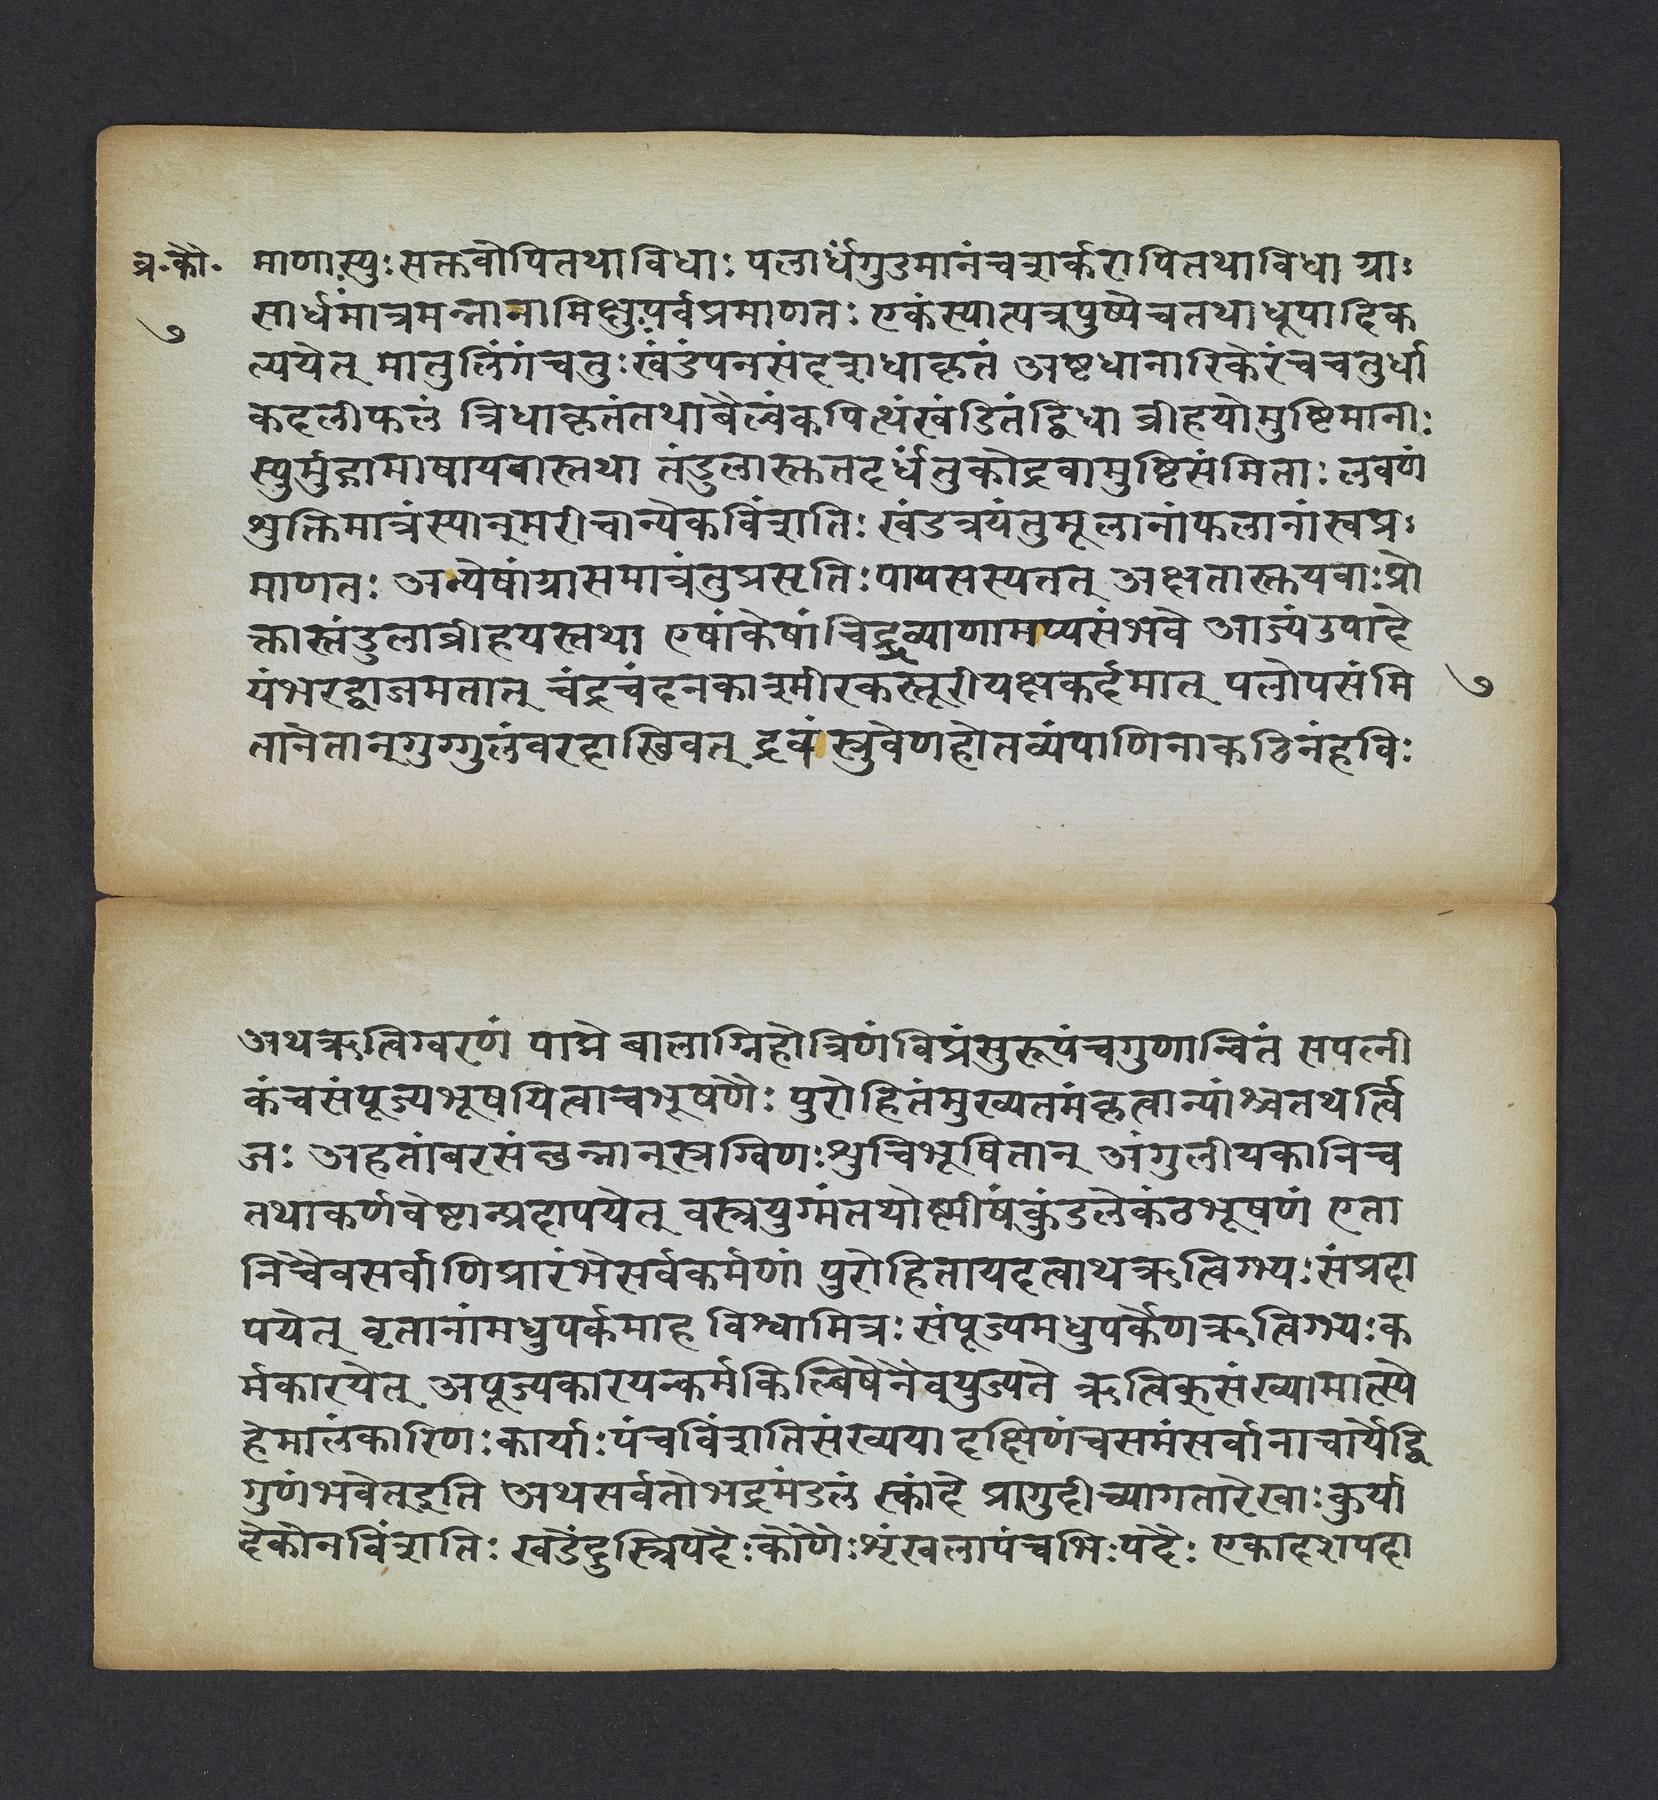 व्र.कौ. माणास्युः सक्तवोपितथाविधाः पलार्धंगुडमानंचशर्करापितथाविधा ग्राः
७ सार्धंमात्रमन्नानामिक्षुपर्वप्रमाणतः एकंस्यात्पत्रपुष्पंचतथाधूपादिक
ल्पयेत् मातुलिंगंचतुःखंडंपनसंदशधाकृतं अष्टधानारिकेरंचचतुर्धा
कदलीफलं त्रिधाकृतंतथाबैल्वंकपित्थंखंडितंद्विधा व्रीहयोमुष्टिमानाः
स्युर्मुद्गामाषायवास्तथा तंडुलास्तुतदर्धंतुकोद्रवामुष्टिसंमिताः लवणं
शुक्तिमात्रंस्यान्मरीचान्येकविंशतिः खंडत्रयंतुमूलानांफलानांस्वप्रः
माणतः अन्येषांग्रासमात्रंतुप्रसृतिःपायसस्यतत् अक्षतास्तुयवाःप्रो
क्तास्तंडुलाव्रीहयस्तथा एषांकेषांचिद्द्रव्याणामप्यसंभवे आज्यंउपादे
यंभरद्वाजमतात् चंद्रचंदनकाश्मीरकस्तूरीयक्षकर्दमात् पलोपसंमि ७
तानेतान्गुग्गुलंवरदास्थिवत् द्रवंस्रुवेणहोतव्यंपाणिनाकठिनंहविः
अथऋत्विग्वरणं पाद्मे बालाग्निहोत्रिणंविप्रंसुरूपंचगुणान्वितं सपत्नी
कंचसंपूज्यभूषयित्वाचभूषणैः पुरोहितंमुख्यतमंकृत्वान्यांश्चतथर्त्वि
जः अहतांबरसंछन्नान्स्रग्विणःशुचिभूषितान् अंगुलीयकानिच
तथाकर्णवेष्टान्प्रदापयेत् वस्त्रयुग्मंतथोष्णीषंकुंडलेकंठभूषणं एता
निचैवसर्वाणिप्रारंभेसर्वकर्मणां पुरोहितायदत्वाथऋत्विग्भ्यःसंप्रदा
पयेत् वृतानांमधुपर्कमाह विश्वामित्रः संपूज्यमधुपर्केणऋत्विग्भ्यःक
र्मकारयेत् अपूज्यकारयन्कर्मकिल्बिषेनैवयुज्यते ऋत्विक्संख्यामात्स्ये
हेमालंकारिणःकार्याःपंचविंशतिसंख्यया दक्षिणंचसमंसर्वानाचार्येद्वि
गुणंभवेत्इति अथसर्वतोभद्रमंडलं स्कांदे प्रागुदीच्यागतारेखाःकुर्या
देकोनविंशतिः खंडेंदुस्त्रिपदैःकोणेःशृंखलापंचभिःपदैः एकादशपदा